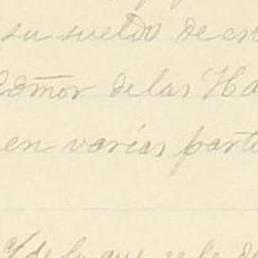 su sueldo de es
de las Ha
en varias part
de lo que se le de